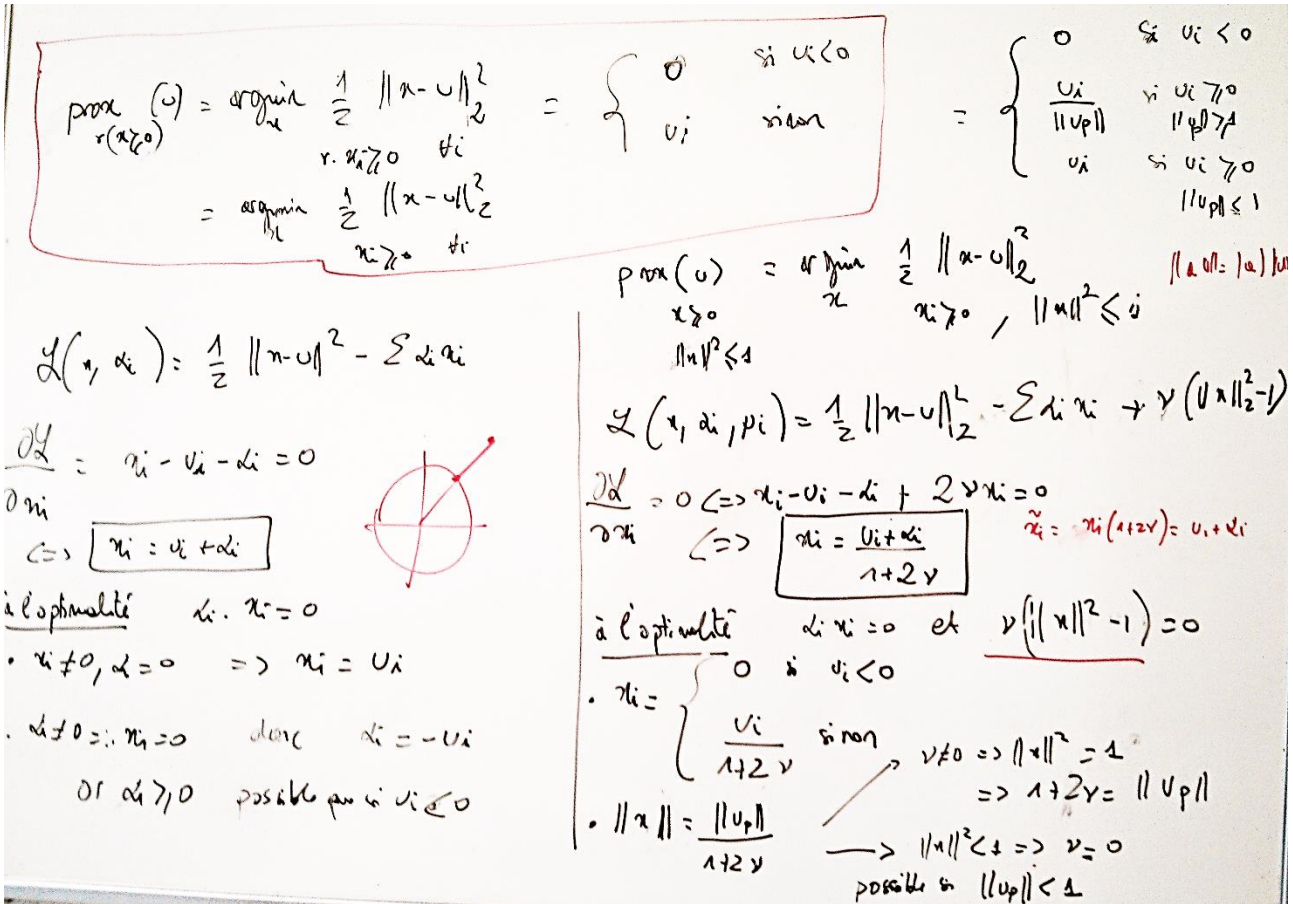 prox_{r(x≥0)} (u) = argmin_x 1/2 ||x-u||_2^2 = { 0 si ui<0
r. xi≥0 ∀i { ui sinon
= argmin_x 1/2 ||x-u||_2^2
xi≥0 ∀i
= { 0 si ui < 0
ui/||up|| si ui ≥0 ||up||≥1
ui si ui ≥0
||up|| ≤ 1
L(x, αi) = 1/2 ||x-u||^2 - Σ αi xi
∂L/∂xi = xi - ui - αi = 0
<=> xi = ui + αi
à l'optimalité αi . xi = 0
• xi ≠ 0, α = 0 => xi = ui
. αi ≠ 0 =: xi = 0 donc αi = -ui
or αi ≥ 0 possible que si ui ≤ 0
prox(u) = argmin_x 1/2 ||x-u||_2^2
x≥0 xi≥0 , ||x||^2 ≤ 1
||x||^2 ≤ 1
||a u|| = |a| ||u
L(x, αi, μi) = 1/2 ||x-u||_2^2 - Σ αi xi + ν(||x||_2^2 - 1)
∂L/∂xi = 0 <=> xi - ui - αi + 2νxi = 0
<=> xi = (ui + αi)/(1+2ν)
x̃i = xi(1+2ν) = ui + αi
à l'optimalité αi xi = 0 et ν(||x||^2 - 1) = 0
• xi = { 0 si ui < 0
ui/(1+2ν) sinon
• ||x|| = ||up||/(1+2ν)
ν≠0 => ||x||^2 = 1
=> 1+2ν = ||up||
—> ||x||^2 < 1 => ν = 0
possible si ||up|| < 1